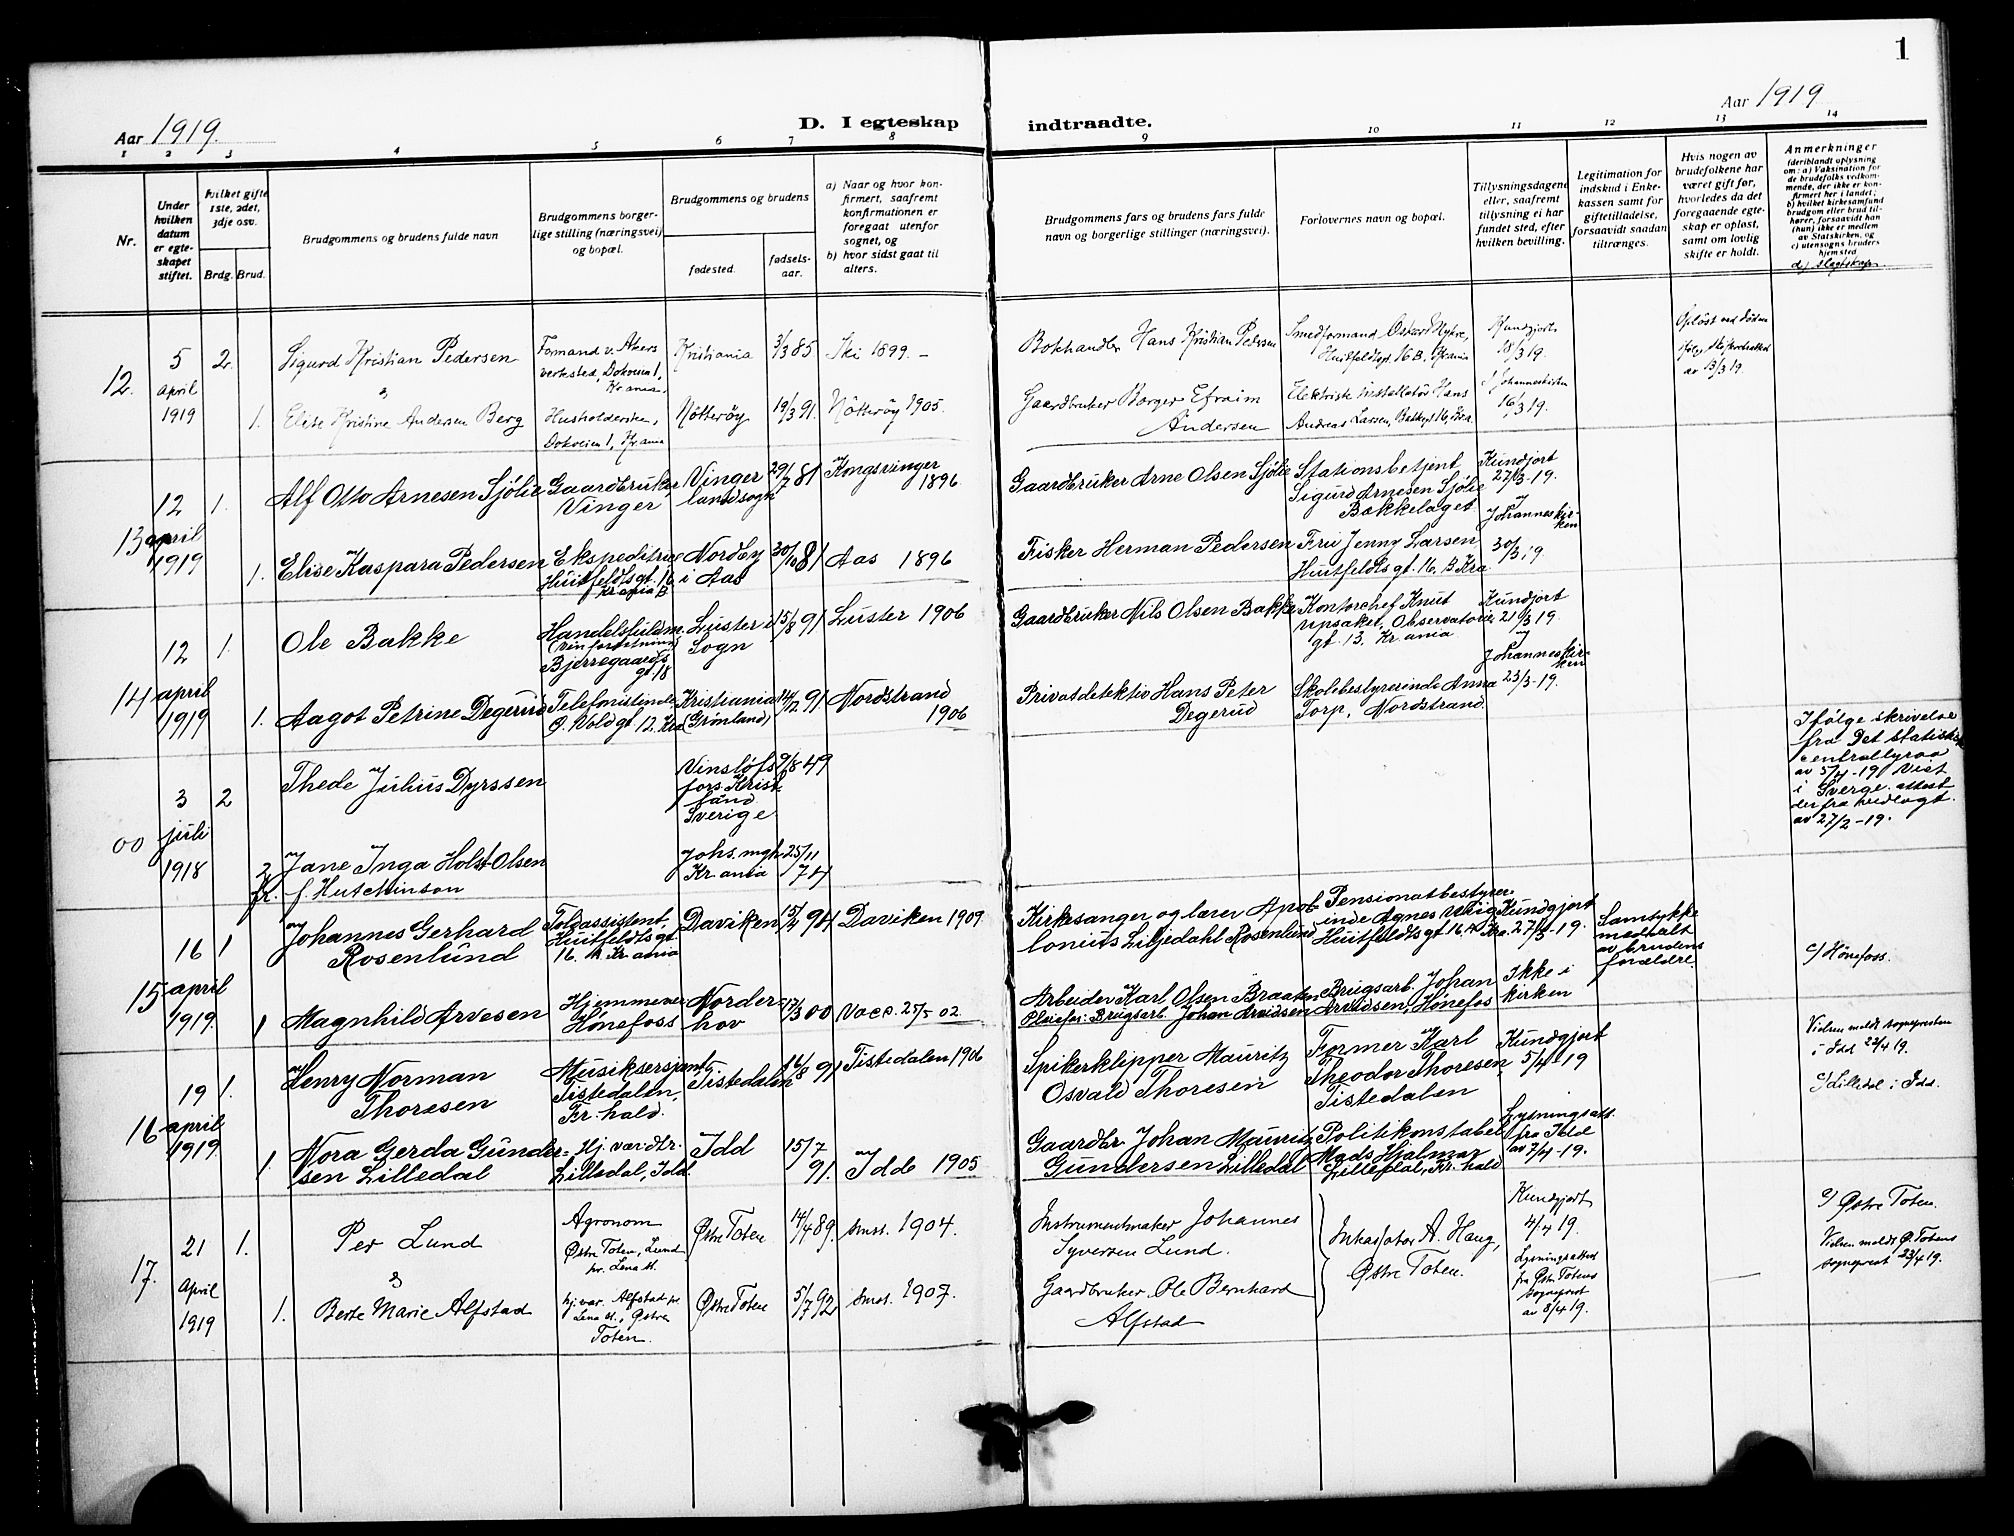 1
Aar 1919.
D. I egteskap indtraadte.
Aar 1919
1 2 3 4 5 6 7 8 9 10 11 12 13 14
Nr.
Under hvilken datum er egteskapet stiftet.
hvilket gifte 1ste, 2det, 3dje osv.
Brdg. Brud.
Brudgommens og brudens fulde navn
Brudgommens borgerlige stilling (næringsvei) og bopæl.
Brudgommens og brudens
fødested.
fødselsaar.
a) Naar og hvor konfirmert, saafremt konfirmationen er foregaat utenfor sognet, og
b) hvor sidst gaat til alters.
Brudgommens fars og brudens fars fulde navn og borgerlige stillinger (næringsvei).
Forlovernes navn og bopæl.
Tillysningsdagene eller, saafremt tillysning ei har fundet sted, efter hvilken bevilling.
Legitimation for indskud i Enkekassen samt for giftetilladelse, forsaavidt saadan tiltrænges.
Hvis nogen av brudefolkene har været gift før, hvorledes da det foregaaende egteskap er opløst, samt om lovlig skifte er holdt.
Anmerkninger
(deriblandt oplysning om: a) Vaksination for de brudefolks vedkommende, der ikke er konfirmert her i landet; b) hvilket kirkesamfund brudgom eller brud tilhører, forsaavidt han (hun) ikke er medlem av Statskirken, og c) utensogns bruders hjemsted
d) slegtskap
12. 5 april 1919 2.
Sigurd Kristian Pedersen
&
Formand v. Akers verksted, Dokveien 1, Kr.ania.
Kristiania 3/3 85 Ski 1899. –
Bokhandler Hans Kristian Pedersen
Smedformand Oskar Myhre, Huitfeldtsgt. 16 B, Kr.ania
Kundgjort 18/3 19.
Opløst ved døden ifølge skifteattest av 13/3 19.
1. Elise Kristine Andersen Berg
Husholderske, Dokveien 1, Kr.ania
Nøtterøy 19/3 91. Nøtterøy 1905.
Gaardbruker Borger Efraim Andersen
Elektrisk installatør Hans Andreas Larsen,
i Johanneskirken 16/3 19.
13 12 april 1919 1.
Alf Otto Arnesen Sjølie
Gaardbruker Vinger
Vinger landsogn 29/7 81 Kongsvinger 1896
Gaardbruker Arne Olsen Sjølie
Stationsbetjent Sigurd Arnesen Sjølie Bækkelaget
Kundgjort 27/3-19.
1. Elise Kaspara Pedersen
Ekspeditrice Huitfeldtsgt. 16 B Kr.ania
Nordby i Aas 30/10 81 Aas 1896
Fisker Herman Pedersen
Frü Jenny Larsen Huitfeldtsgt. 16. B Kra.
I Johanneskirken 30/3 19
14 12 april 1919 1.
Ole Bakke
Handelsfuldm. (vinforretning) Bjerregaardsgt. 18
Luster i Sogn 15/8 91 Luster 1906
Gaardbruker Nils Olsen Bakke
Kontorchef Knut Upsaker, Observatoriegt. 13. Kr.ania
Kundgjort 21/3 19.
1. Aagot Petrine Degerud
Telefonistinde Ø. Voldgt. 12. Kra
Kristiania (Grønland) 14/2 91 Nordstrand 1906
Privatdetektiv Hans Peter Degerud
Skolebestyrerinde Anna Torp, Nordstrand.
I Johanneskirken 23/3-19.
00 3 juli 1918 2
Thede Julius Dyrssen
Vinsløfs fors. Kristland Sverige 9/8 49
Ifølge skrivelse fra Det statistiske centralbyraa av 5/4-19 viet i Sverge. attest derfra vedlagt. av 27/2-19.
2 fr. Jane Inga Holst-Olsen f. Hutchinson
Johs. mgh. Kr.ania 25/11 74
15 16 april 1919. 1
Johannes Gerhard Rosenlund
Toldassistent, Huitfeldtsgt. 16. A Kr.ania
Daviken 15/2 94 Daviken 1909
Kirkesanger og lærer Apollonius Liljedahl Rosenlund
Pensionatbestyrerinde Agnes Wiig Huitfeldtsgt. 16. A Kra.
Kundgjort 27/3-19.
Samtykke meddelt av brudens forældre.
c/ Hønefoss.
1 Magnhild Arvesen
Hjemmevær. Hønefoss
Norderhov 17/3 00 Vacc. 25/5 02
Arbeider Karl Olsen Braaten
Pleiefar: Brugsarb. Johan Arvidsen
Brugsarb. Johan Arvidsen, Hønefos
Ikke i kirken
16 19 april 1919 1.
Henry Norman Thoresen
Musiksersjant Tistedalen, Fr.hald.
Tistedalen 16/8 91 Tistedalen 1906
Spikerklipper Mauritz Osvald Thoresen
Former Karl Theodor Thoresen, Tistedalen
Kundgjort 5/4-19
Vielsen meldt sognepresten i Idd 22/4 19.
c/ Lilledal i Idd.
1. Nora Gerda Gundersen Lilledal
Hj. værdtr. Lilledal, Idd
Idd 15/7 91. Idd 1905
Gaardbr. Johan Mauritz Gundersen Lilledal
Politikonstabel Mads Hjalmar Lilledal, Fr.hald.
Lysningsatt. fra Idd av 7/4-19.
17. 21 April 1919 1.
Per Lund
&
Agronom Østre Toten, Lund pr. Lena st.
Østre Toten 14/4 89. smst. 1904.
Instrumentmaker Johannes Syversen Lund.
Inkassator A. Haug, Østre Toten.
Kundgjort 4/4 19.
c/ Østre Toten.
Vielsen meldt Ø. Totens sogneprest 23/4 19.
1. Berte Marie Alfstad
hj.vær. Alfstad pr. Lena st., Østre Toten.
Østre Toten 5/7 92 smst. 1907.
Gaardbruker Ole Bernhard Alfstad
Lysningsattest fra Østre Totens sogneprest av 8/4 19.